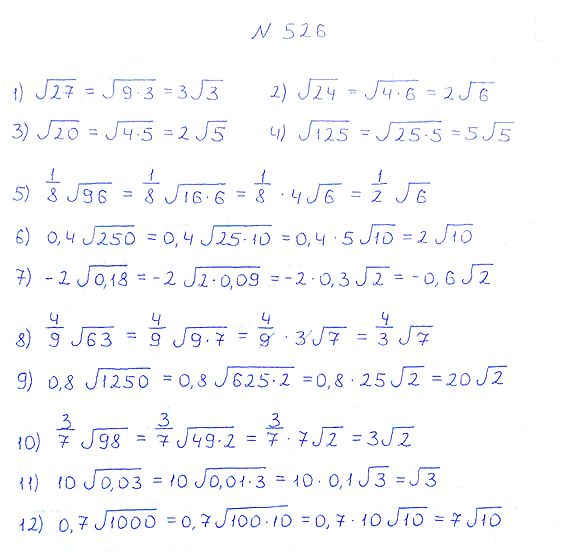 N 526
1) √27 = √9·3 = 3√3 2) √24 = √4·6 = 2√6
3) √20 = √4·5 = 2√5 4) √125 = √25·5 = 5√5
5) 1/8 √96 = 1/8 √16·6 = 1/8 · 4√6 = 1/2 √6
6) 0,4√250 = 0,4√25·10 = 0,4·5√10 = 2√10
7) -2√0,18 = -2√2·0,09 = -2·0,3√2 = -0,6√2
8) 4/9 √63 = 4/9 √9·7 = 4/9 · 3√7 = 4/3 √7
9) 0,8 √1250 = 0,8√625·2 = 0,8·25√2 = 20√2
10) 3/7 √98 = 3/7 √49·2 = 3/7 · 7√2 = 3√2
11) 10√0,03 = 10√0,01·3 = 10·0,1√3 = √3
12) 0,7√1000 = 0,7√100·10 = 0,7·10√10 = 7√10